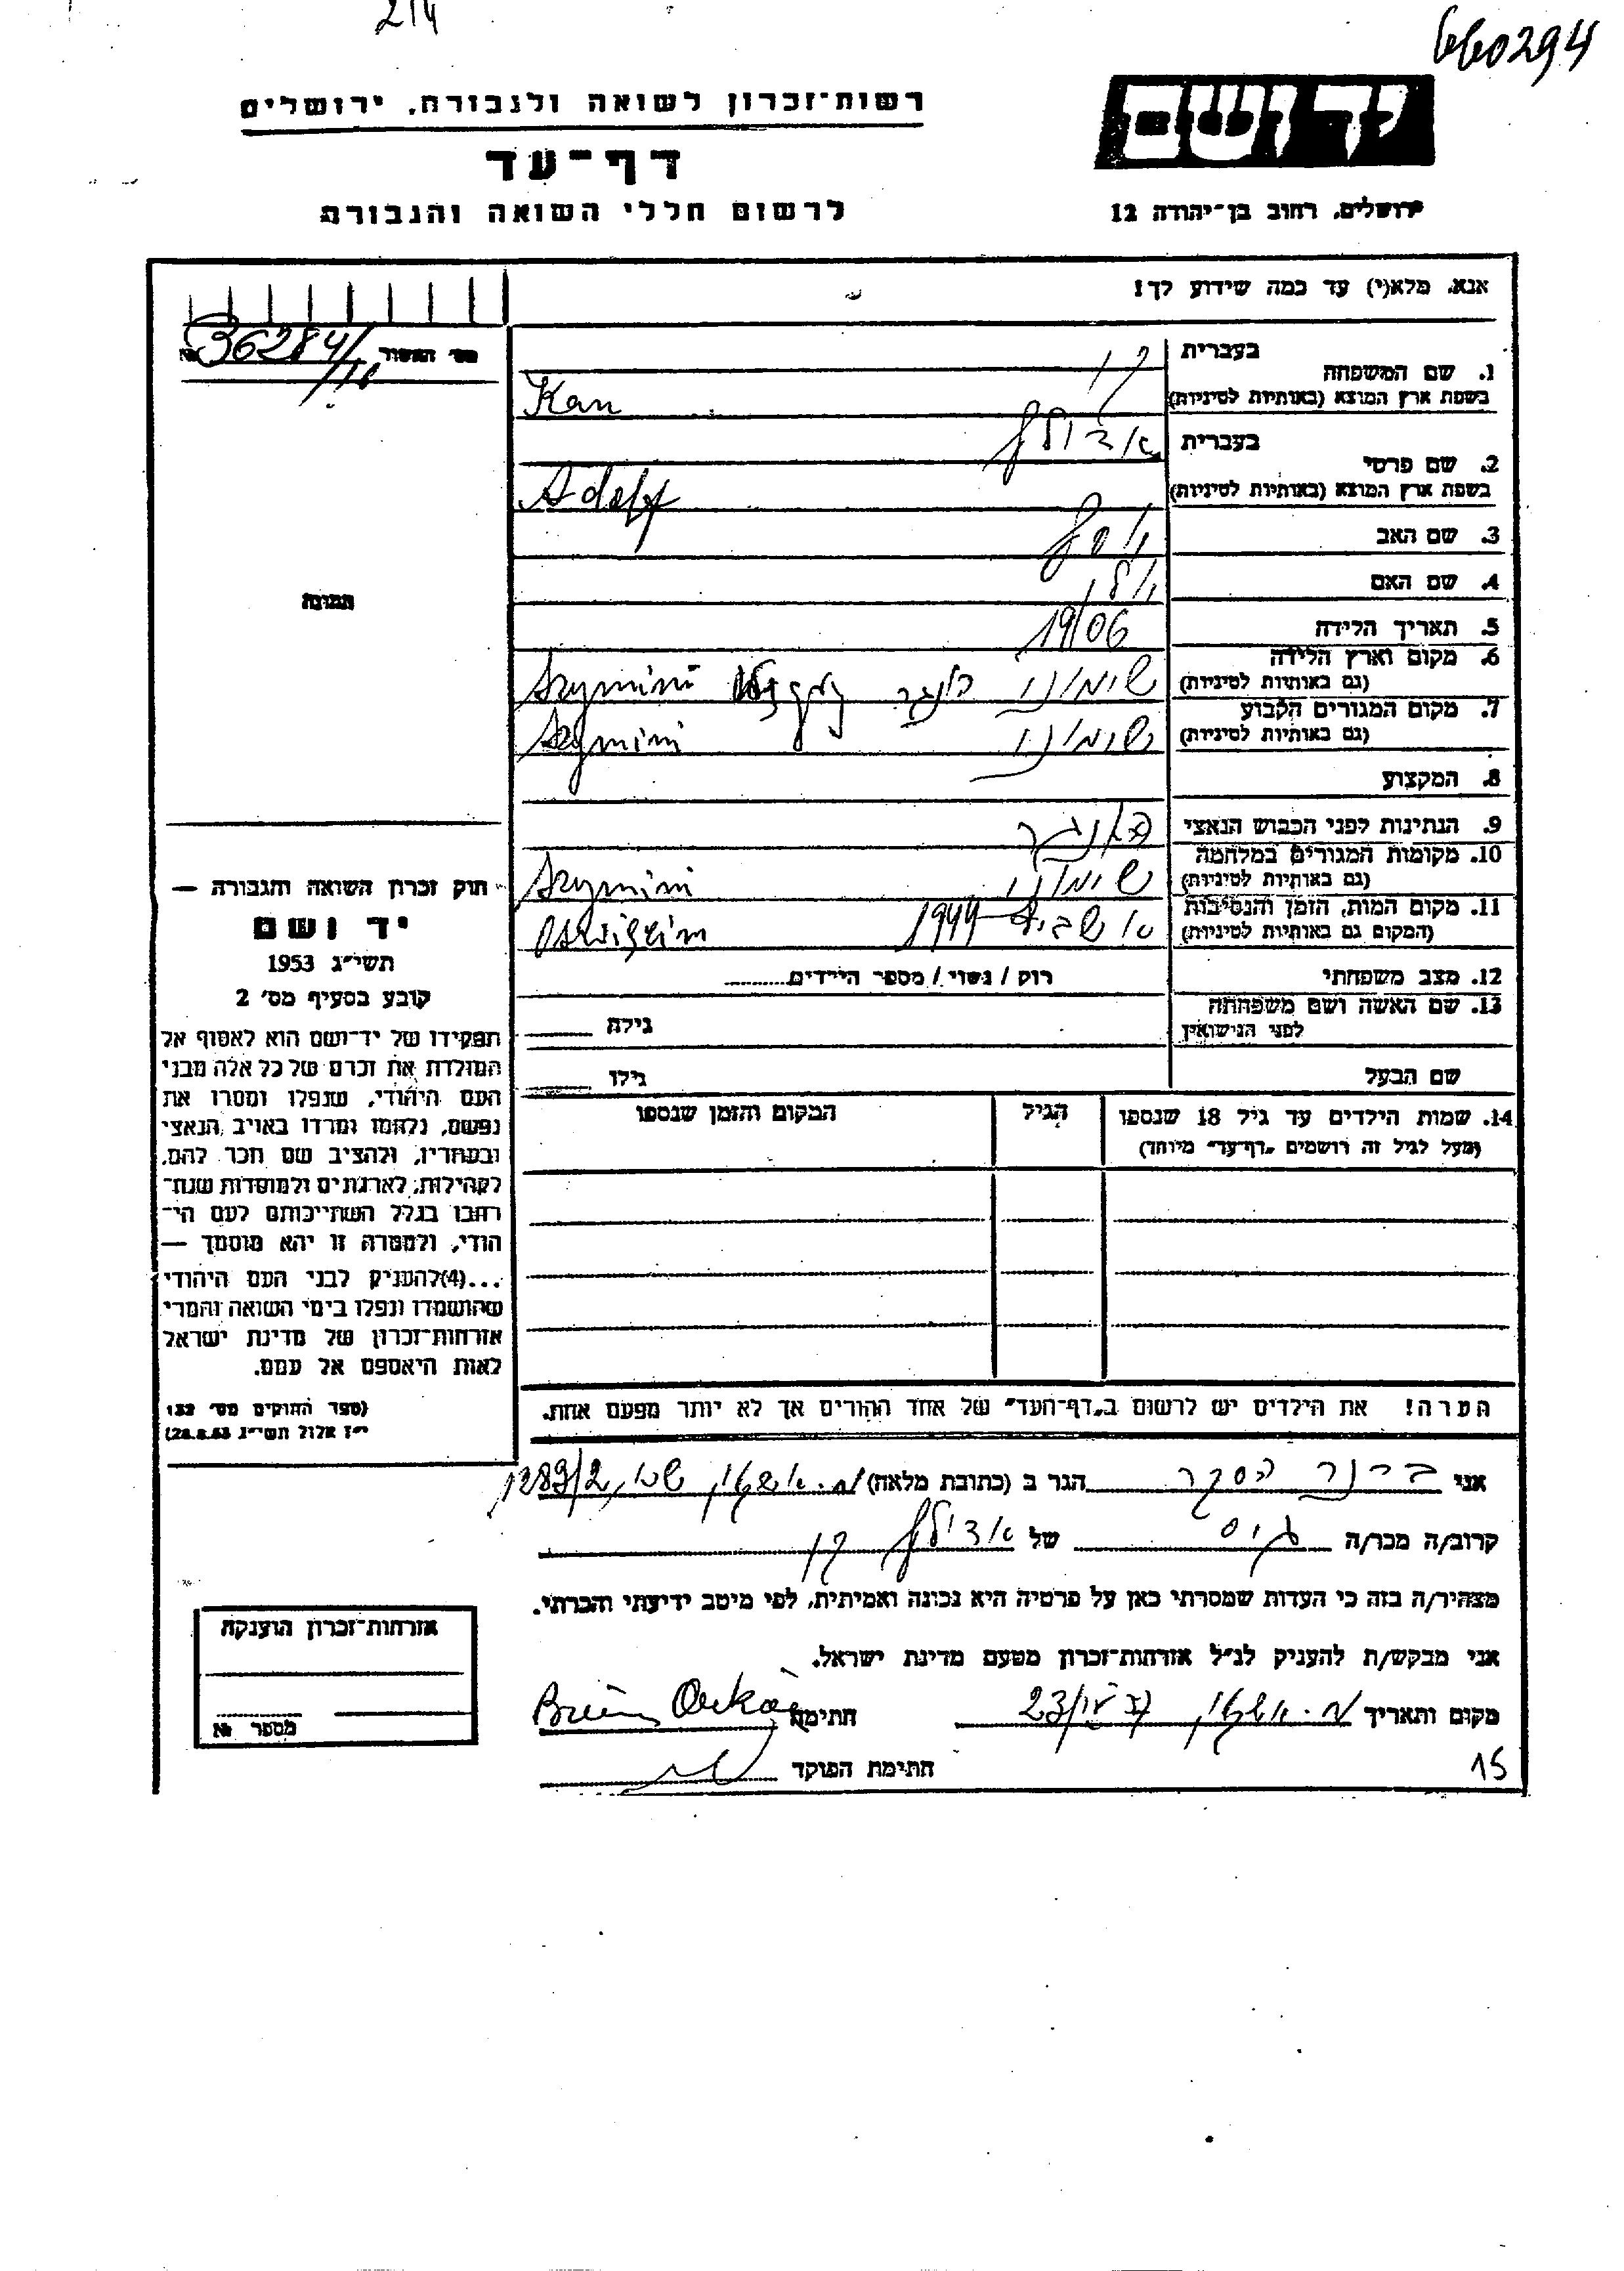 214
660294
רשות־זכרון לשואה ולגבורה, ירושלים
יד ושם
דף־עד
לרשום חללי השואה והגבורה
ירושלים, רחוב בן־יהודה 12
אנא, מלא(י) עד כמה שידוע לך!
מס׳ האשור 36284/
בעברית
1. שם המשפחה
בשפת ארץ המוצא (באותיות לטיניות) Kan
קן
בעברית אדולף
2. שם פרטי
בשפת ארץ המוצא (באותיות לטיניות) Adolf
3. שם האב
4. שם האם
5. תאריך הלידה 1906
6. מקום וארץ הלידה
(גם באותיות לטיניות) Szymini
7. מקום המגורים הקבוע
(גם באותיות לטיניות) Szymini
8. המקצוע
9. הנתינות לפני הכבוש הנאצי
10. מקומות המגורים במלחמה
(גם באותיות לטיניות) Szymini
11. מקום המות, הזמן והנסיבות
(המקום גם באותיות לטיניות) 1944
12. מצב משפחתי רוק / נשוי / מספר הילדים
13. שם האשה ושם משפחתה
לפני הנישואין גילה
שם הבעל גילו
14. שמות הילדים עד גיל 18 שנספו הגיל המקום והזמן שנספו
(מעל לגיל זה רושמים "דף־עד" מיוחד)
הערה! את הילדים יש לרשום ב"דף־העד" של אחד ההורים אך לא יותר מפעם אחת.
תמונה
חוק זכרון השואה והגבורה —
יד ושם
תשי"ג 1953
קובע בסעיף מס׳ 2
תפקידו של יד־ושם הוא לאסוף אל
המולדת את זכרם של כל אלה מבני
העם היהודי, שנפלו ומסרו את
נפשם, נלחמו ומרדו באויב הנאצי
ובעוזריו, ולהציב שם וזכר להם,
לקהילות, לארגונים ולמוסדות שנח־
רבו בגלל השתייכותם לעם הי־
הודי, ולמטרה זו יהא מוסמך —
...(4)להעניק לבני העם היהודי
שהושמדו ונפלו בימי השואה והמרי
אזרחות־זכרון של מדינת ישראל
לאות היאספם אל עמם.
(ספר החוקים מס׳ 132
י"ז אלול תשי"ג 28.8.53)
אני ברנר הסקר הגר ב (כתובת מלאה)
קרוב/ה מכר/ה גיס של אדולף קן
מצהיר/ה בזה כי העדות שמסרתי כאן על פרטיה היא נכונה ואמיתית, לפי מיטב ידיעתי והכרתי.
אני מבקש/ת להעניק לנ"ל אזרחות־זכרון מטעם מדינת ישראל.
מקום ותאריך חתימה
חתימת הפוקד
15
אזרחות־זכרון הוענקה
מספר №